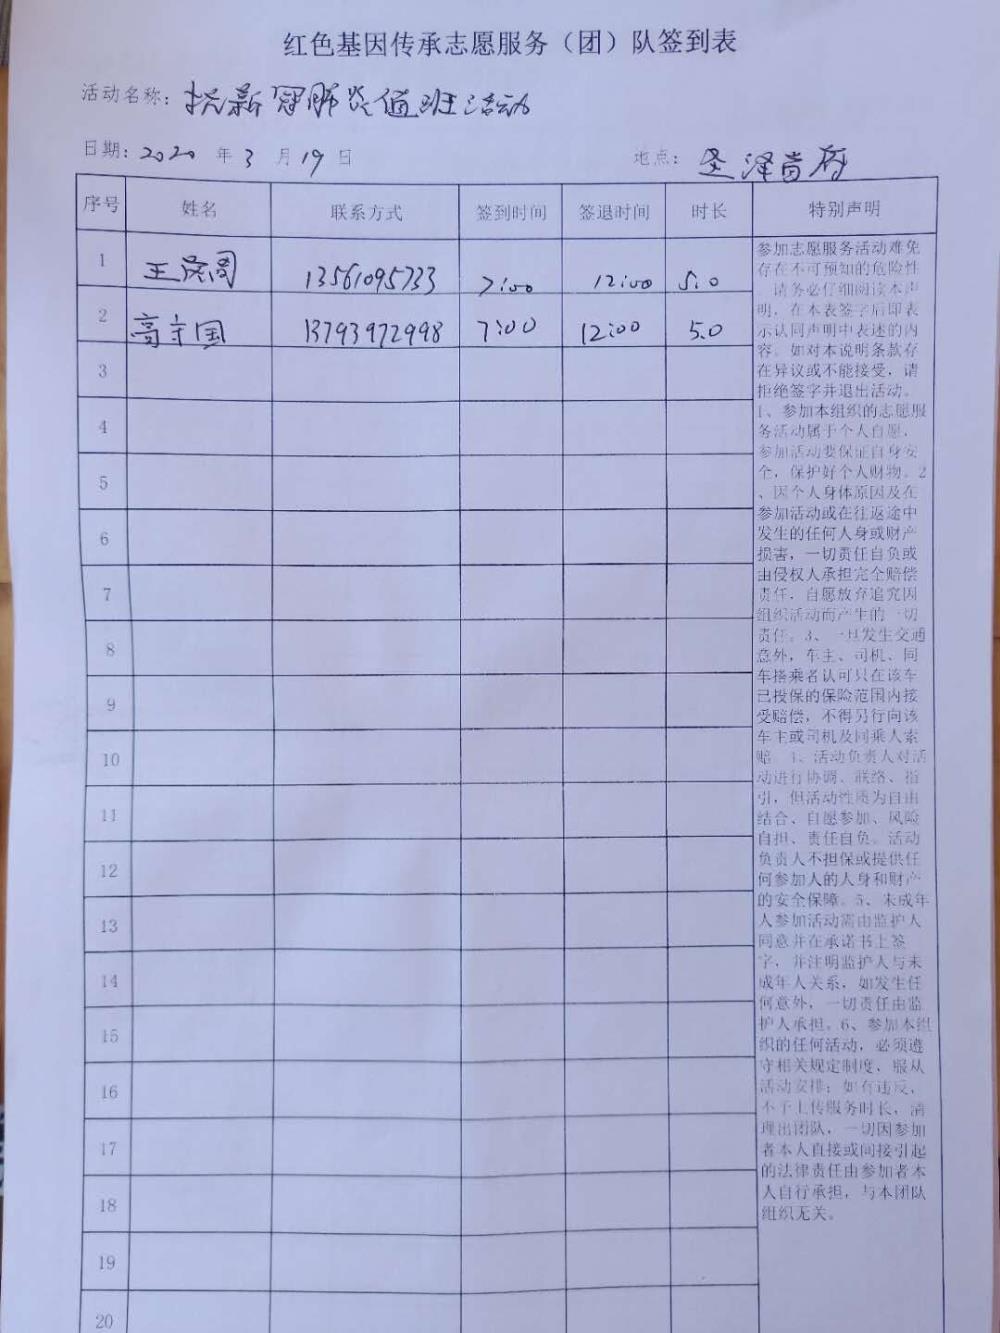 红色基因传承志愿服务（团）队签到表
活动名称：抗新冠肺炎值班活动
日期：2020 年 3 月 19 日 地点：圣泽尚府
序号 姓名 联系方式 签到时间 签退时间 时长 特别声明
1 王 周 13561095733 7:00 12:00 5.0
2 高守国 13793972998 7:00 12:00 5.0
3
4
5
6
7
8
9
10
11
12
13
14
15
16
17
18
19
20
参加志愿服务活动难免
存在不可预知的危险性
，请务必仔细阅读本声
明，在本表签字后即表
示认同声明中表述的内
容。如对本说明条款存
在异议或不能接受，请
拒绝签字并退出活动。
1、参加本组织的志愿服
务活动属于个人自愿，
参加活动要保证自身安
全，保护好个人财物。2
、因个人身体原因及在
参加活动或在往返途中
发生的任何人身或财产
损害，一切责任自负或
由侵权人承担完全赔偿
责任，自愿放弃追究因
组织活动而产生的一切
责任。3、一旦发生交通
意外，车主、司机、同
车搭乘者认可只在该车
已投保的保险范围内接
受赔偿，不得另行向该
车主或司机及同乘人索
赔。4、活动负责人对活
动进行协调、联络、指
引，但活动性质为自由
结合、自愿参加、风险
自担、责任自负。活动
负责人不担保或提供任
何参加人的人身和财产
的安全保障。5、未成年
人参加活动需由监护人
同意并在承诺书上签
字，并注明监护人与未
成年人关系，如发生任
何意外，一切责任由监
护人承担。6、参加本组
织的任何活动，必须遵
守相关规定制度，服从
活动安排；如有违反，
不予上传服务时长，清
理出团队，一切因参加
者本人直接或间接引起
的法律责任由参加者本
人自行承担，与本团队
组织无关。